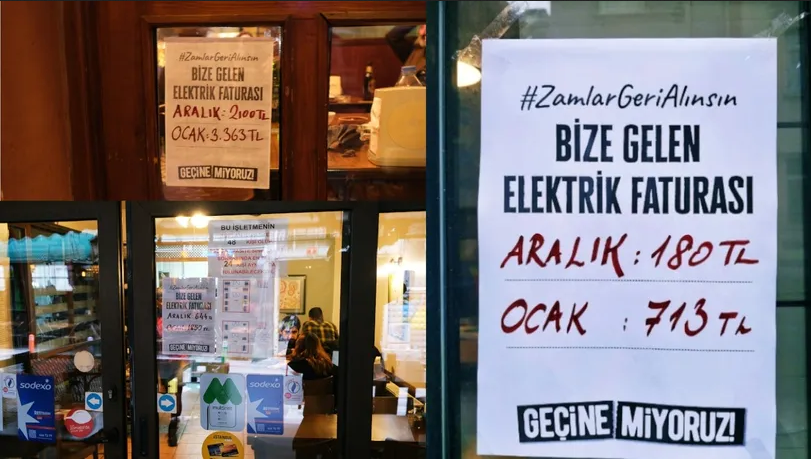 #ZamlarGeriAlınsın
BİZE GELEN
ELEKTRİK FATURASI
ARALIK: 2100TL
OCAK: 3.363TL
GEÇİNE MİYORUZ!
BU İŞLETMENİN
48
24
BİZE GELEN
ELEKTRİK FATURASI
ARALIK
GEÇİNE MİYORUZ!
sodexo
multinet
sodexo
#ZamlarGeriAlınsın
BİZE GELEN
ELEKTRİK FATURASI
ARALIK : 180 TL
OCAK : 713 TL
GEÇİNE MİYORUZ!